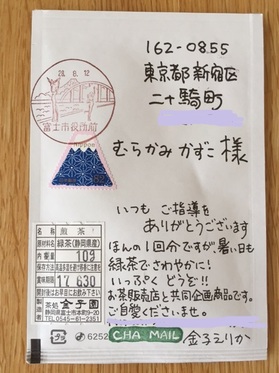 162-0855
東京都新宿区
二十騎町
28.8.12
富士市役所前
Nippon
むらかみ かずこ 様
いつも ご指導を
ありがとうございます
ほんの1回分ですが暑い日も
緑茶でさわやかに!
いっぷく どうぞ!!
お茶販売店と共同企画商品です。
ご自愛くださいませ。
金子えりか
CHA MAIL
名称 煎茶
原材料名 緑茶(静岡県産)
内容量 10g
保存方法 高温多湿を避け移香に注意
賞味期限 17.6.30
開封後はお早目にお飲み下さい
茶処 金子園
静岡県富士市本町9-20
TEL 0545-61-2351
プラ
6252